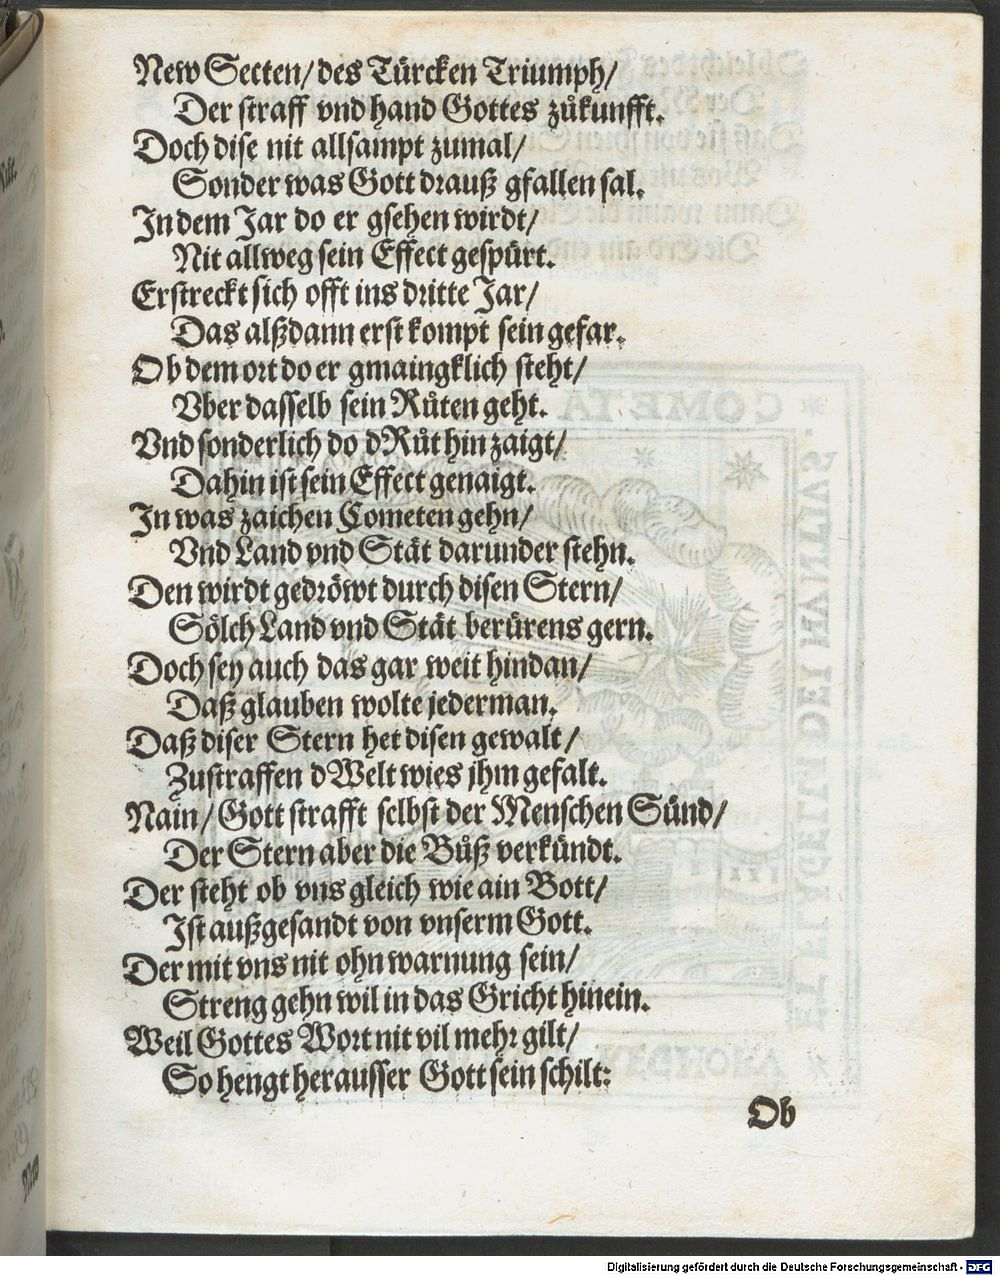 New Secten/ des Türcken Triumph/
Der straff vnd hand Gottes zůkunfft.
Doch dise nit allsampt zumal/
Sonder was Gott drauß gfallen sal.
In dem Jar do er gsehen wirdt/
Nit allweg sein Effect gespürt.
Erstreckt sich offt ins dritte Jar/
Das alßdann erst kompt sein gefar.
Ob dem ort do er gmaingklich steht/
Vber dasselb sein Růten geht.
Vnd sonderlich do dRůt hin zaigt/
Dahin ist sein Effect genaigt.
In was zaichen Cometen gehn/
Vnd Land vnd Stät darunder stehn.
Den wirdt gedröwt durch disen Stern/
Sölch Land vnd Stät berürens gern.
Doch sey auch das gar weit hindan/
Daß glauben wolte jederman.
Daß diser Stern het disen gewalt/
Zustraffen dWelt wies jhm gefalt.
Nain/ Gott strafft selbst der Menschen Sünd/
Der Stern aber die Bůß verkündt.
Der steht ob vns gleich wie ain Bott/
Ist außgesandt von vnserm Gott.
Der mit vns nit ohn warnung sein/
Streng gehn wil in das Gricht hinein.
Weil Gottes Wort nit vil mehr gilt/
So hengt herausser Gott sein schilt:
Ob
Digitalisierung gefördert durch die Deutsche Forschungsgemeinschaft - DFG